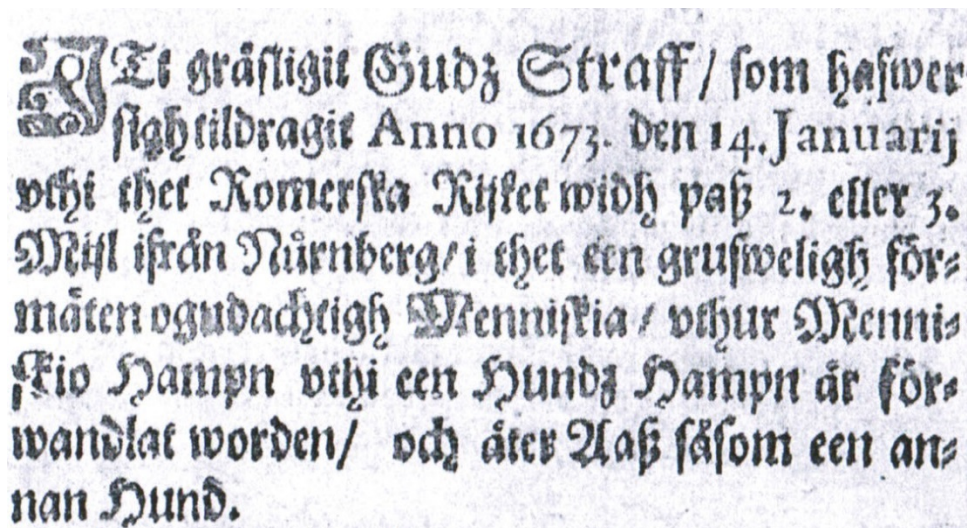 ITt gräsligit Gudz Straff / som hafwer
sigh tildragit Anno 1673. den 14. Januarij
vthi thet Romerska Rijket widh paß 2. eller 3.
Mijl ifrån Nürnberg / i thet een grufweligh för⸗
mäten ogudachtigh Menniskia / vthur Menni⸗
skio Hampn vthi een Hundz Hampn är för⸗
wandlat worden / och äter Aaß såsom een an⸗
nan Hund.